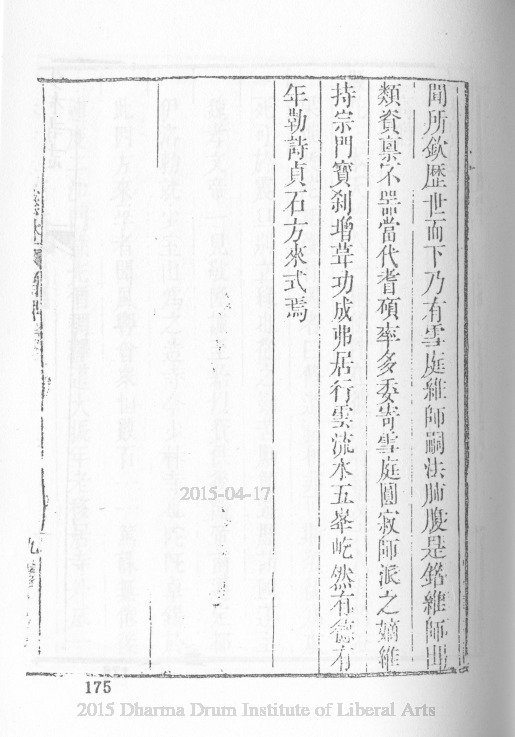 聞所欽歷世而下乃有雪庭維師嗣法肺腹是鍇維師出
類資稟不器當代耆碩率多委寄雪庭圓寂師派之嫡維
持宗門寶刹增葺功成弗居行雲流水五峯屹然有德有
年勒詩貞石方來式焉
九
2015-04-17
175
2015 Dharma Drum Institute of Liberal Arts